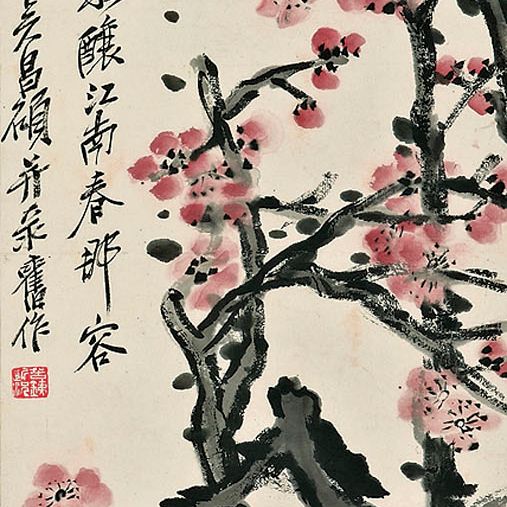 釀江南春那容
吳昌碩并录舊作